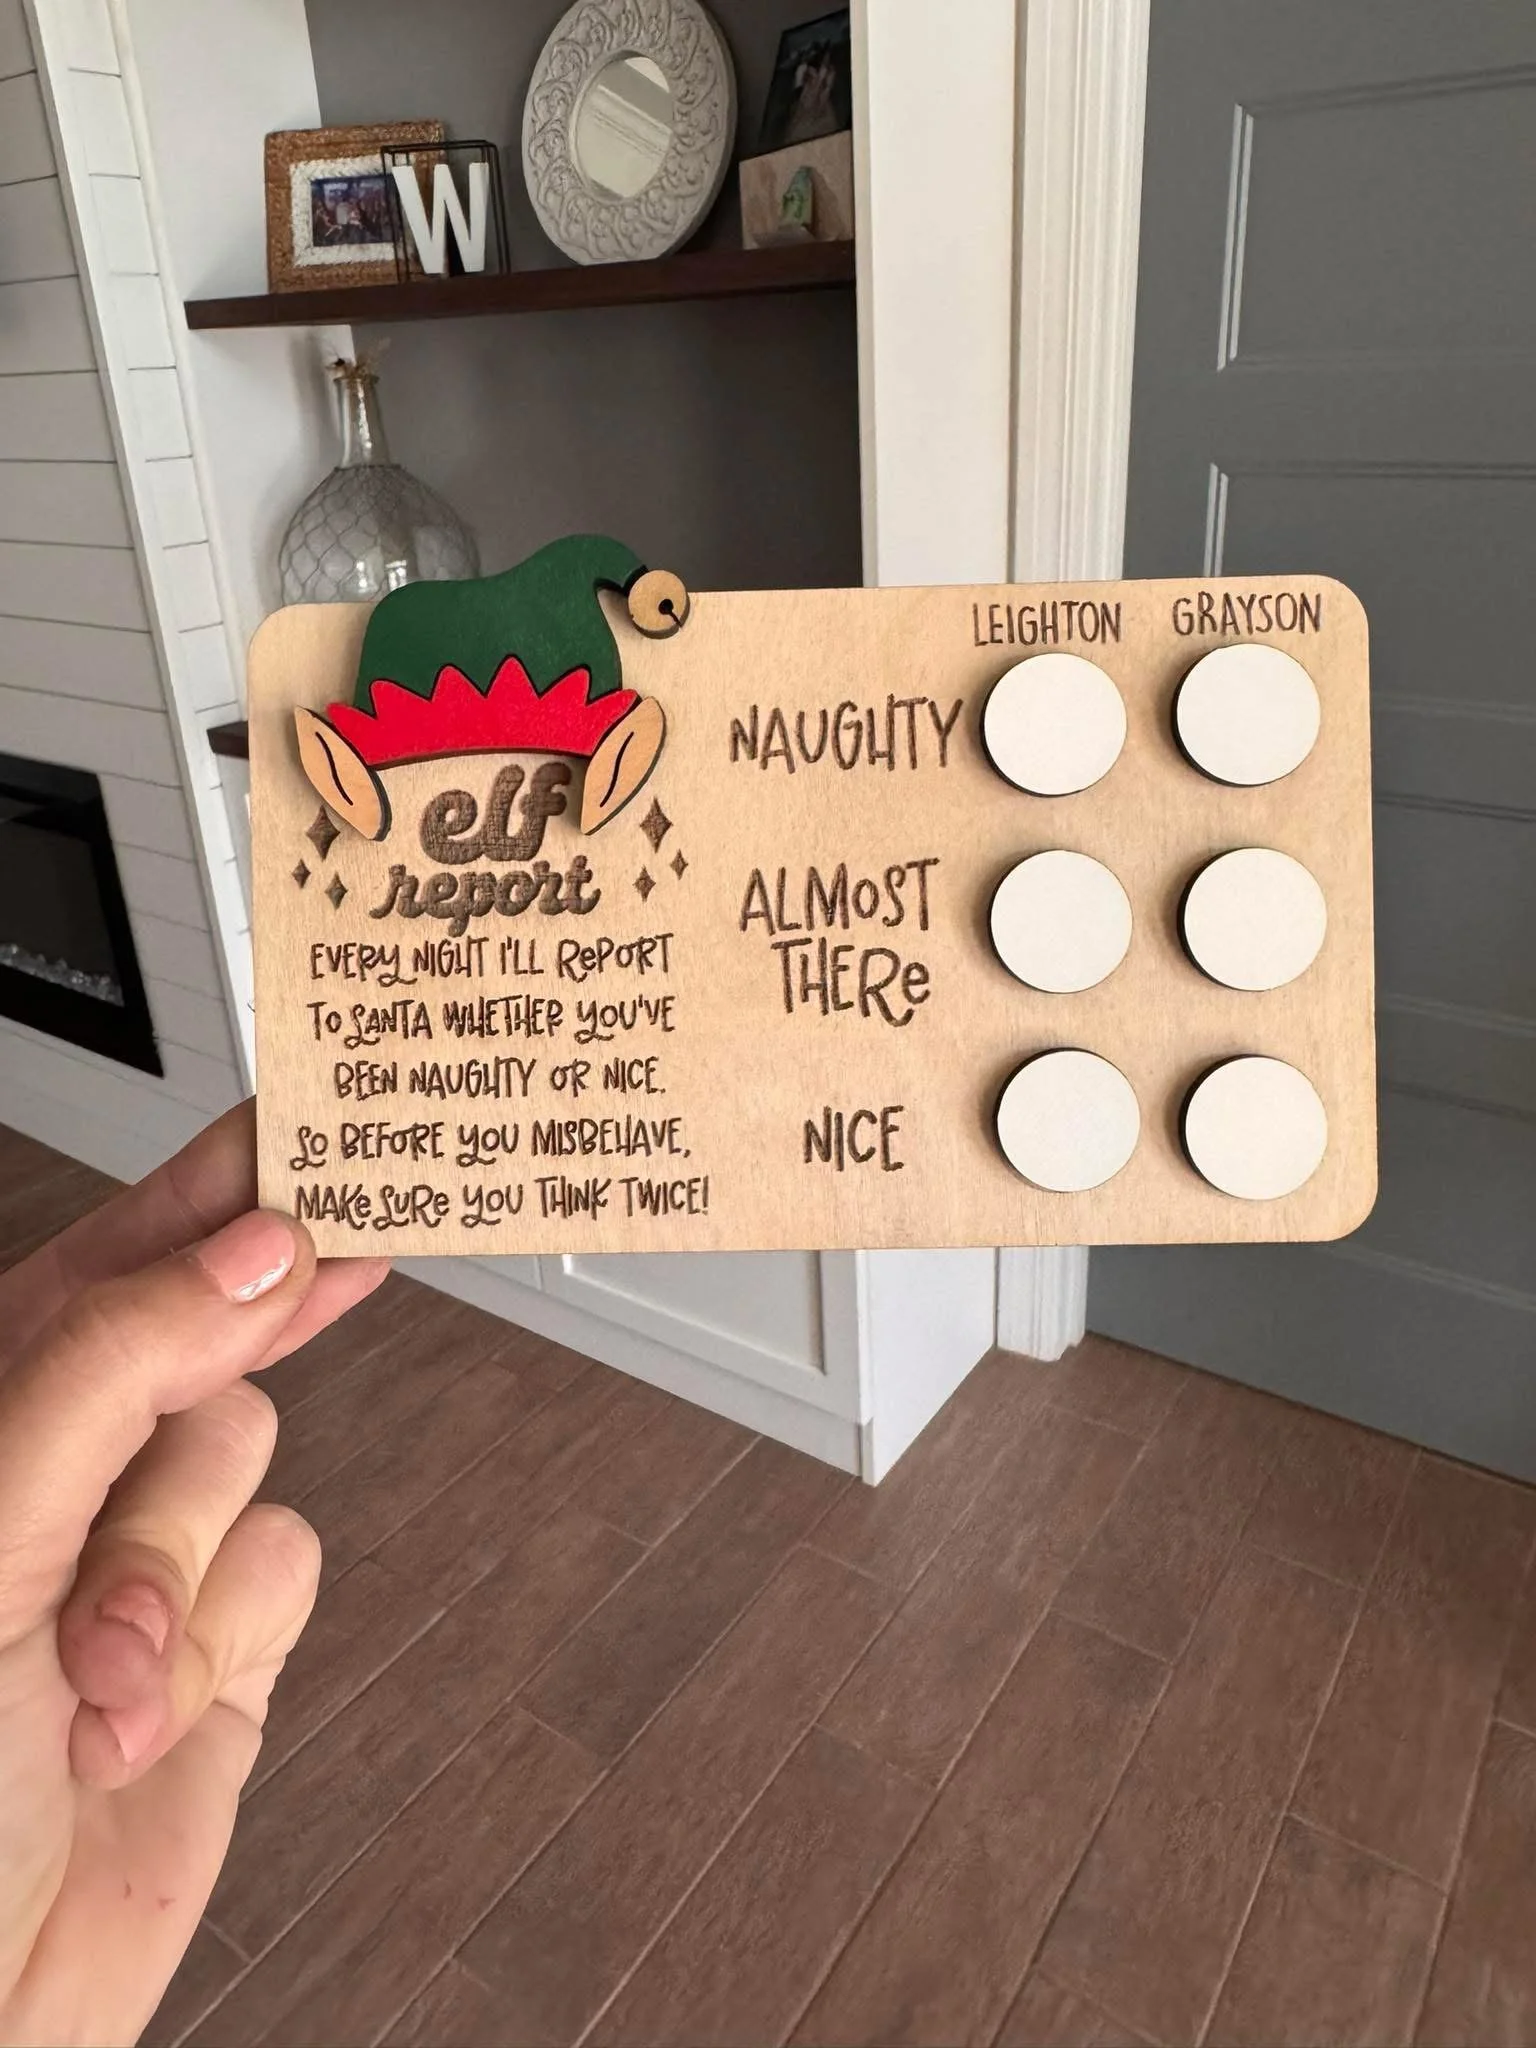 W
elf
report
EVERY NIGHT I'LL REPORT
TO SANTA WHETHER YOU'VE
BEEN NAUGHTY OR NICE.
SO BEFORE YOU MISBEHAVE,
MAKE SURE YOU THINK TWICE!
LEIGHTON GRAYSON
NAUGHTY
ALMOST
THERE
NICE